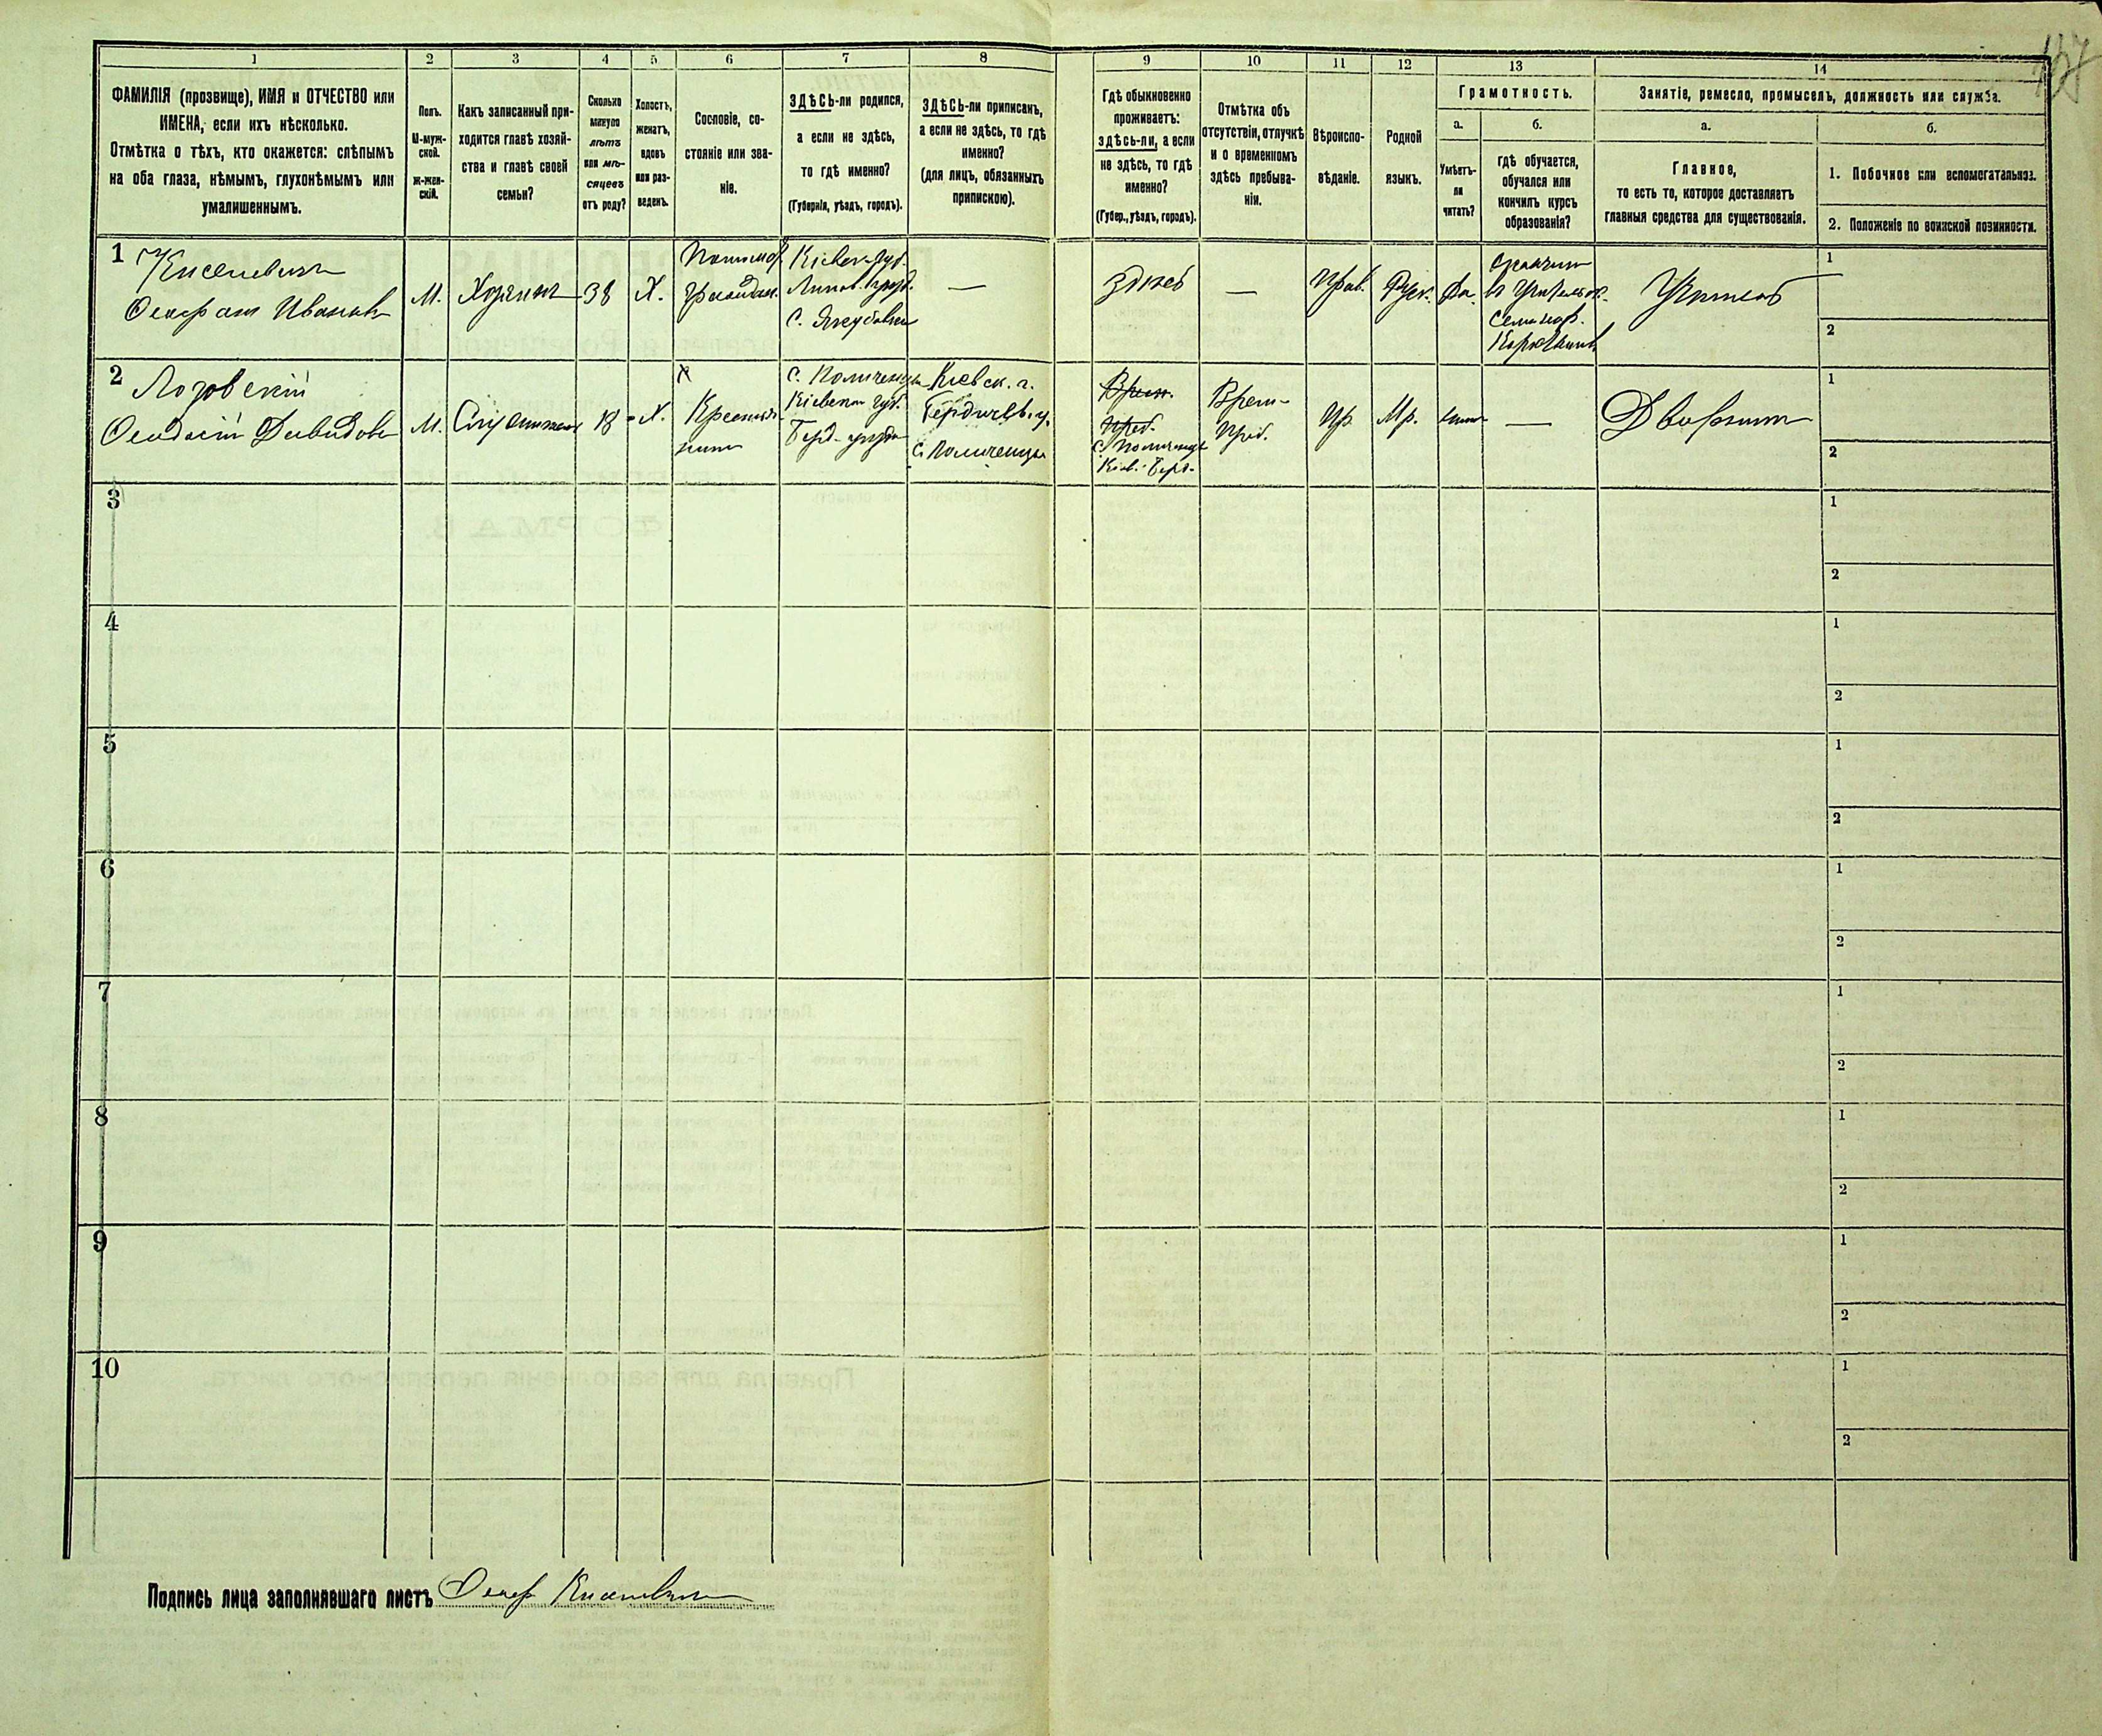 157
1
2
3
4
5
6
7
8
9
10
11
12
13
14
ФАМИЛІЯ (прозвище), ИМЯ и ОТЧЕСТВО или
ИМЕНА, если ихъ нѣсколько.
Отмѣтка о тѣхъ, кто окажется: слѣпымъ
на оба глаза, нѣмымъ, глухонѣмымъ или
умалишеннымъ.
Полъ.
М-муж-
ской.
Ж-жен-
скій.
Какъ записанный при-
ходится главѣ хозяй-
ства и главѣ своей
семьи?
Сколько
минуло
лѣтъ
или мѣ-
сяцевъ
отъ роду?
Холостъ,
женатъ,
вдовъ
или раз-
веденъ.
Сословіе, со-
стояніе или зва-
ніе.
ЗДѢСЬ-ли родился,
а если не здѣсь,
то гдѣ именно?
(Губернія, уѣздъ, городъ).
ЗДѢСЬ-ли приписанъ,
а если не здѣсь, то гдѣ
именно?
(для лицъ, обязанныхъ
припискою).
Гдѣ обыкновенно
проживаетъ:
здѣсь-ли, а если
не здѣсь, то гдѣ
именно?
(Губер., уѣздъ, городъ).
Отмѣтка объ
отсутствіи, отлучкѣ
и о временномъ
здѣсь пребыва-
ніи.
Вѣроиспо-
вѣданіе.
Родной
языкъ.
Грамотность.
а.
б.
Умѣетъ-
ли
читать?
гдѣ обучается,
обучался или
кончилъ курсъ
образованія?
Занятіе, ремесло, промыселъ, должность или служба.
а.
б.
Главное,
то есть то, которое доставляетъ
главныя средства для существованія.
1. Побочное или вспомогательное.
2. Положеніе по воинской повинности.
1
Киселевичъ
М.
Хозяинъ
38
Х.
Кіевск. губ.
Липов. уѣзд.
—
здѣсь
—
Прав.
Руск.
Да.
Семинар.
Учитель
1
2
2
Лозовскій
Ѳеодосій Давидовъ
М.
18
Х.
Крестья-
нинъ
Кіевск. г.
Бердичев. у.
Времен.
Преб.
Пр.
Мр.
—
Дворникъ
1
2
3
1
2
4
1
2
5
1
2
6
1
2
7
1
2
8
1
2
9
1
2
10
1
2
Подпись лица заполнявшаго листъ